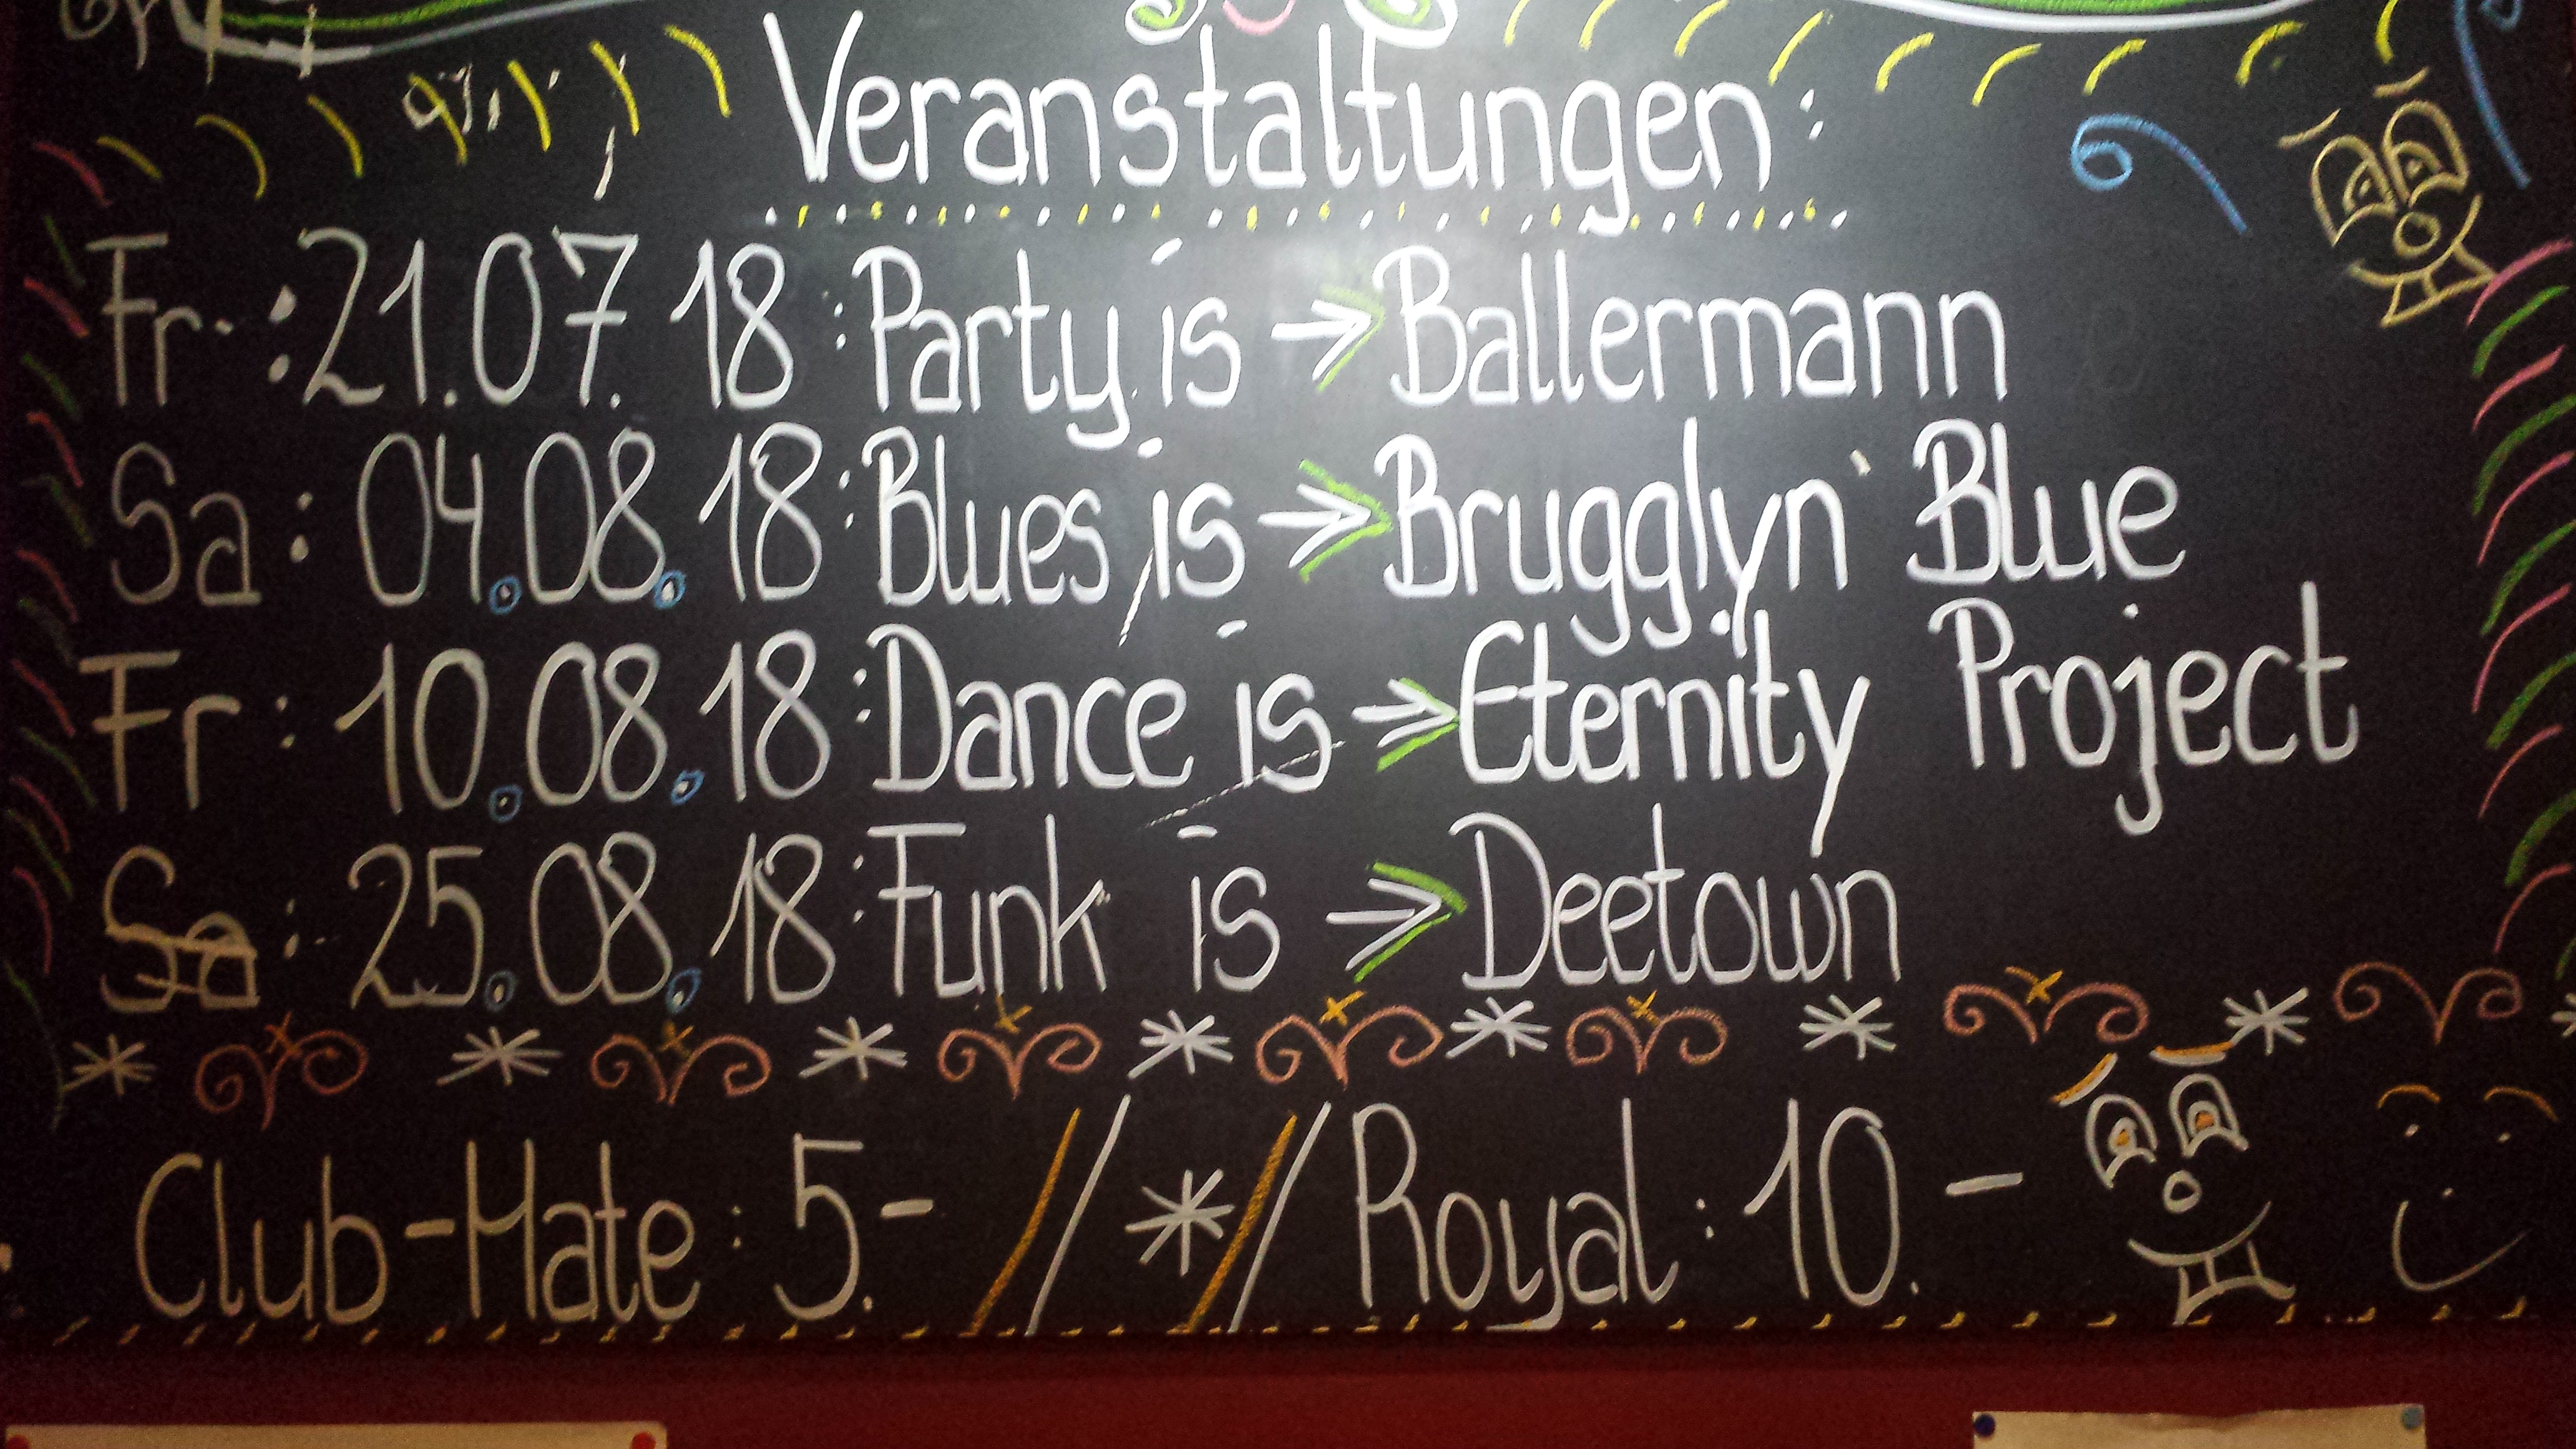 Veranstaltungen:
Fr. : 21.07.18 : Party is → Ballermann
Sa : 04.08.18 : Blues is → Brugglyn Blue
Fr : 10.08.18 : Dance is → Eternity Project
Sa : 25.08.18 : Funk is → Deetown
Club-Mate : 5.- // * // Royal : 10.-